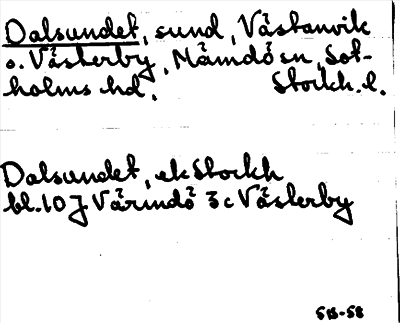 Dalsundet, sund, Västanvik
o. Västerby, Nämdö sn, Sot-
holms hd, Stockh. l.
Dalsundet, ek Stockh
bl. 10 J Värmdö 3c Västerby
515-58